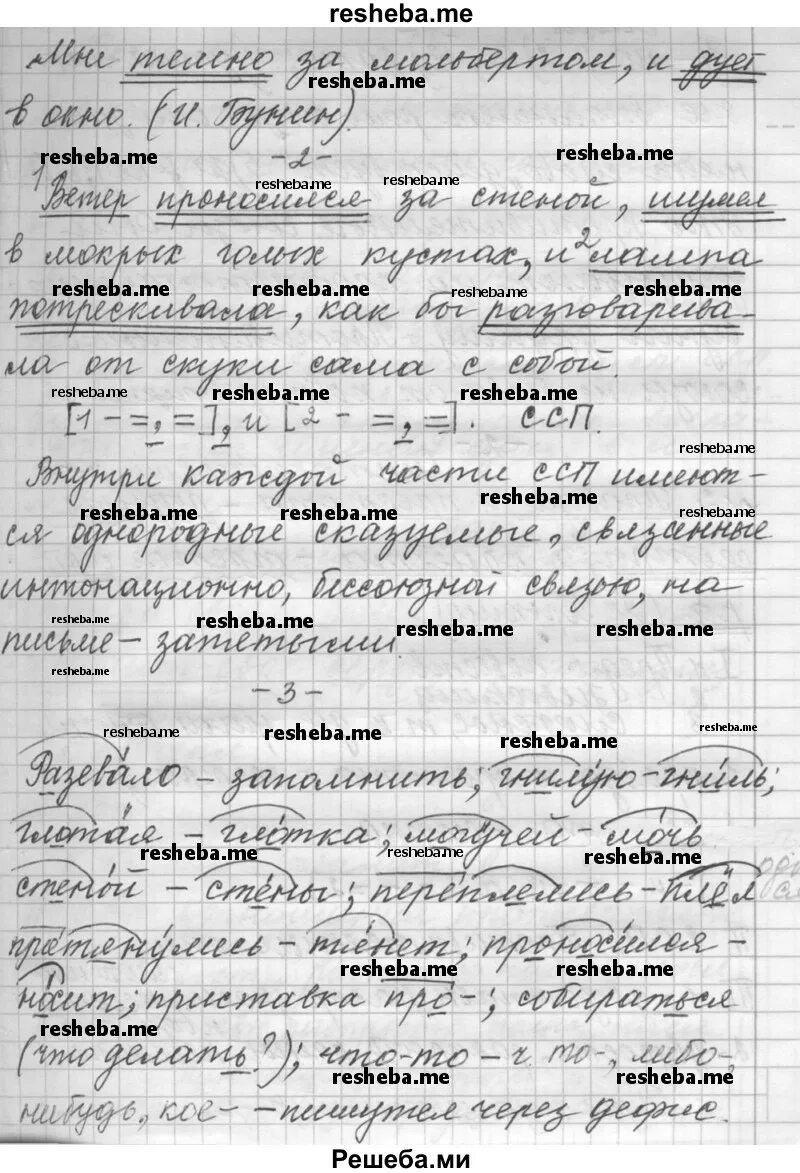 resheba.me
Мне темно за мольбертом, и дует
resheba.me
в окно. (И. Бунин).
resheba.me - 2 - resheba.me
resheba.me resheba.me
1 Ветер проносился за стеной, шумел
в мокрых голых кустах, и 2 лампа
resheba.me resheba.me resheba.me resheba.me
потрескивала, как бы разговарива-
ла от скуки сама с собой.
resheba.me resheba.me resheba.me
[1 – =, =], и [2 – =, =]. ССП.
resheba.me
Внутри каждой части ССП имеют-
resheba.me
resheba.me resheba.me
ся однородные сказуемые, связанные
интонационно, бессоюзной связью, на
resheba.me resheba.me resheba.me resheba.me
письме – запятыми.
resheba.me
- 3 -
resheba.me resheba.me resheba.me
resheba.me
Разевало – запомнить; гнилую – гниль;
глотая – глотка; могучей – мочь.
resheba.me resheba.me resheba.me
стеной – стены; переплелись – плёл
протянулись – тянет; проносился –
resheba.me resheba.me
носит; приставка про-; собираться
resheba.me
(что делать?); что-то – ч. то-, либо-,
resheba.me resheba.me
нибудь, кое- – пишутся через дефис.
Решеба.ми